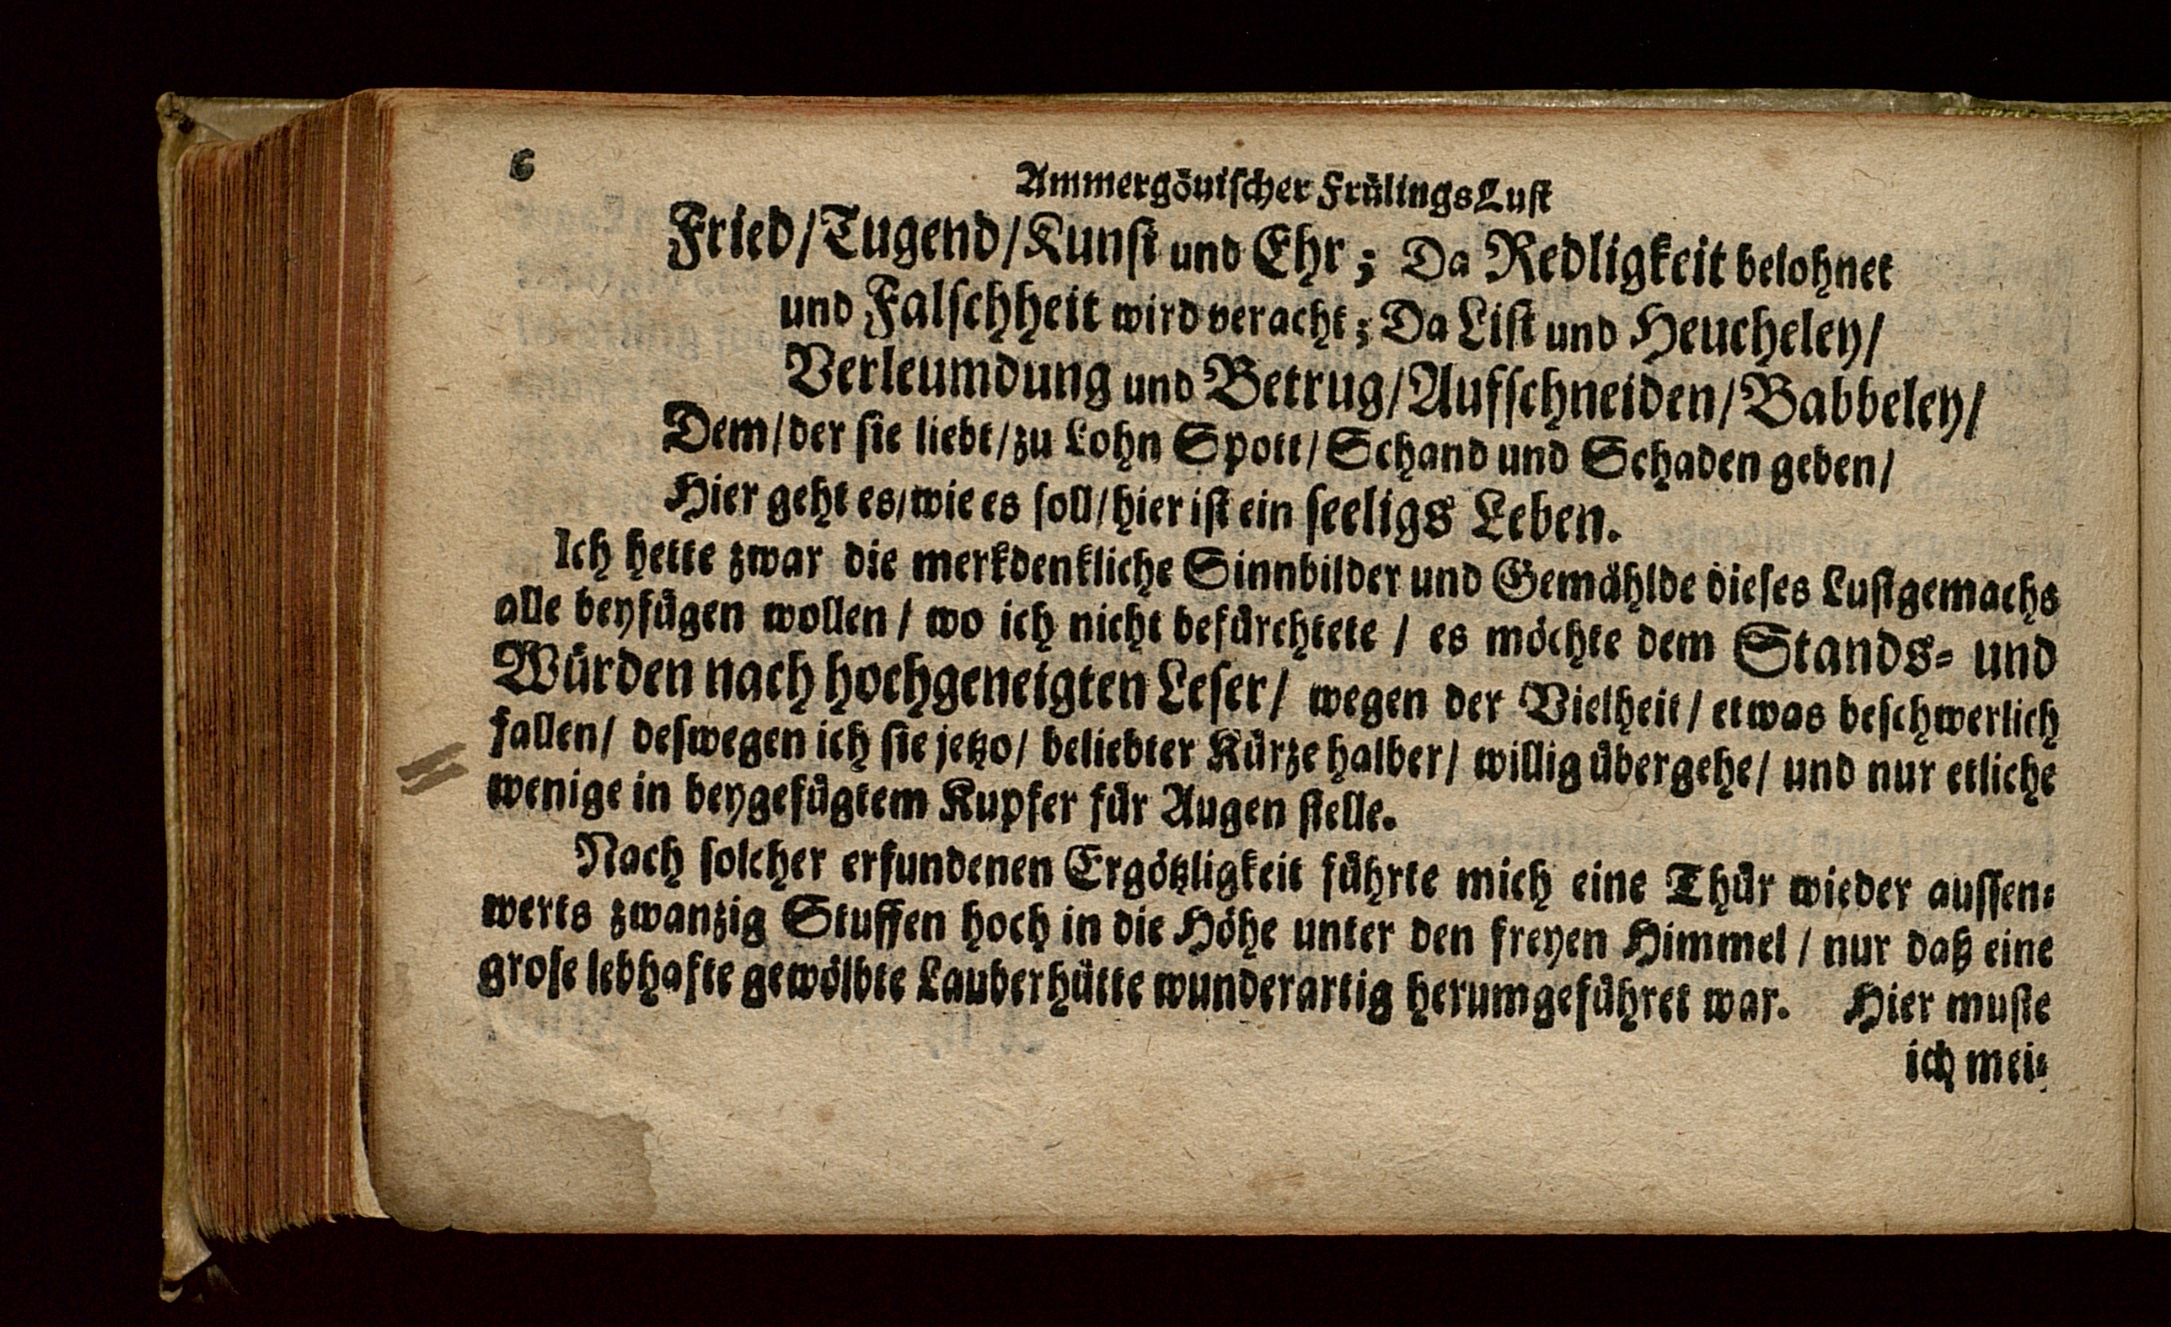 6
Ammergöuiſcher FrülingsLuſt
Fried/Tugend/Kunſt und Ehr; Da Redligkeit belohnet
und Falſchheit wird veracht; Da Liſt und Heucheley/
Verleumdung und Betrug/Aufſchneiden/Babbeley/
Dem/der ſie liebt/zu Lohn Spott/Schand und Schaden geben/
Hier geht es/wie es ſoll/hier iſt ein ſeeligs Leben.
Ich hette zwar die merkdenkliche Sinnbilder und Gemählde dieſes Luſtgemachs
alle beyfügen wollen / wo ich nicht befürchtete / es möchte dem Stands- und
Würden nach hochgeneigten Leſer/ wegen der Vielheit/ etwas beſchwerlich
fallen/ deſwegen ich ſie jetzo/ beliebter Kürze halber/ willig übergehe/ und nur etliche
wenige in beygefügtem Kupfer für Augen ſtelle.
Nach ſolcher erfundenen Ergötzligkeit führte mich eine Thür wieder auſſen-
werts zwanzig Stuffen hoch in die Höhe unter den freyen Himmel / nur daß eine
groſe lebhafte gewölbte Lauberhütte wunderartig herumgeführet war. Hier muſte
ich mei-